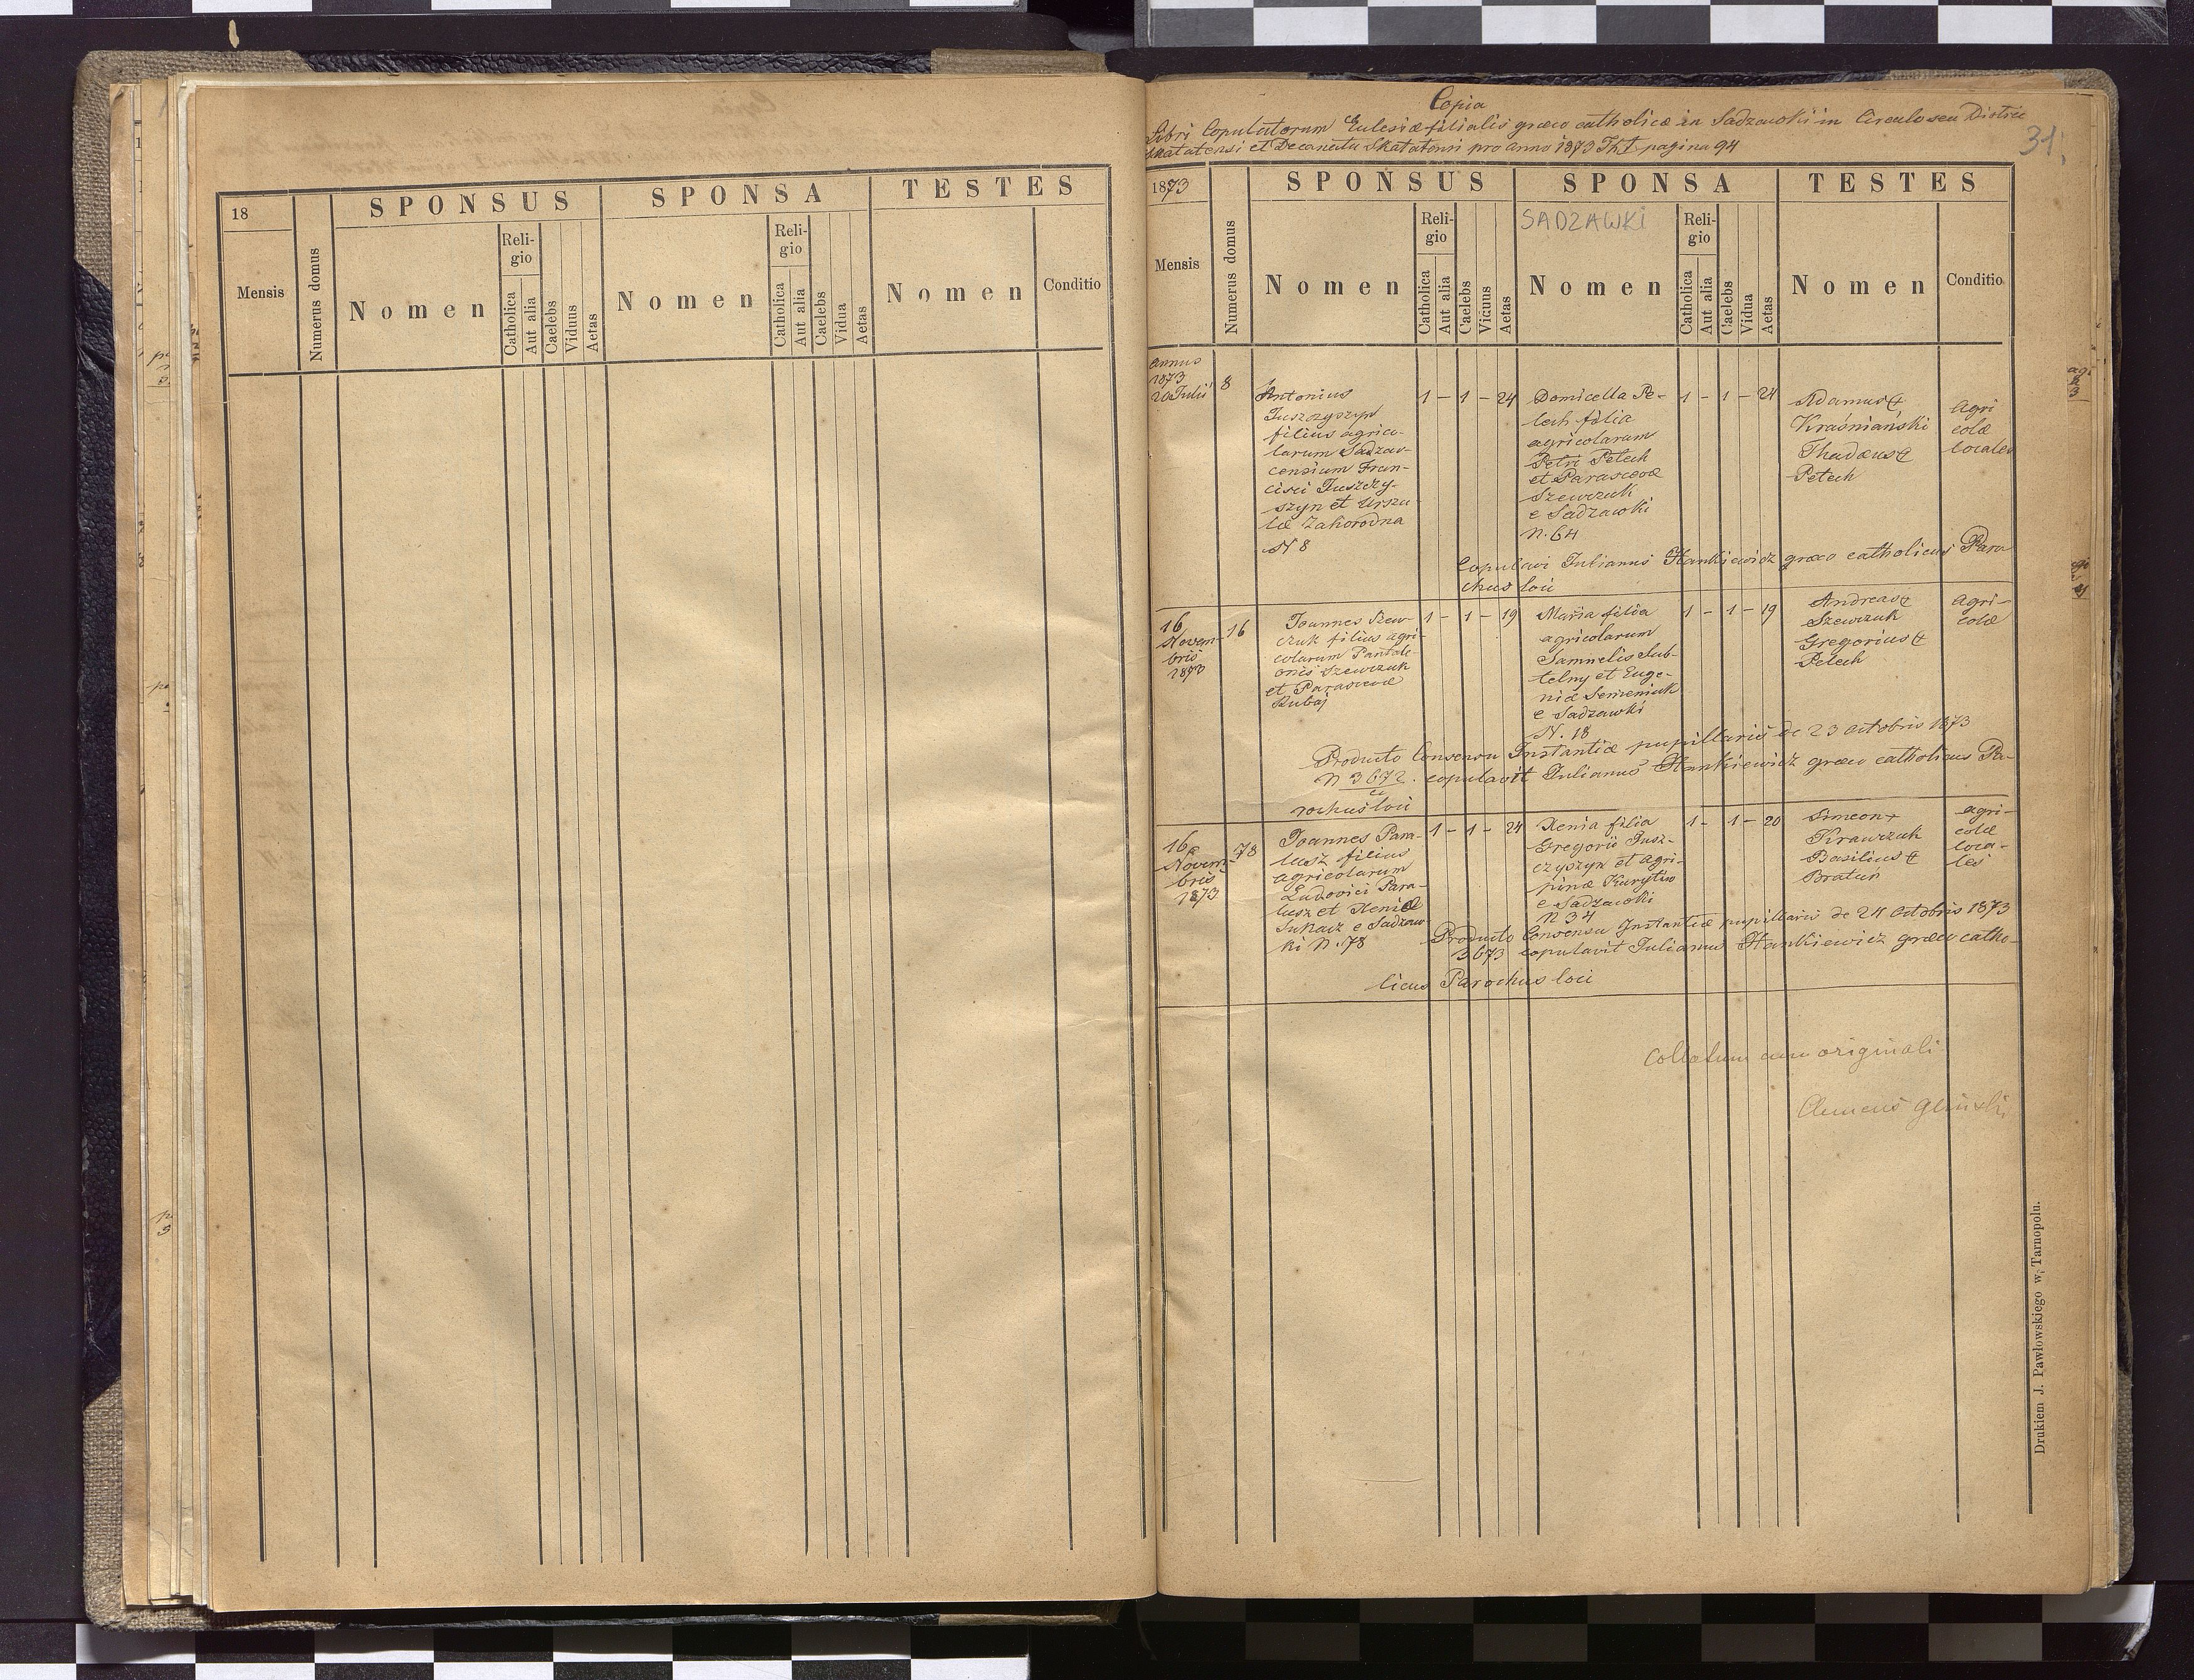 18
SPONSUS SPONSA TESTES
Mensis
Numerus domus
Nomen
Religio
Catholica
Aut alia
Caelebs
Viduus
Aetas
Nomen
Religio
Catholica
Aut alia
Caelebs
Vidua
Aetas
Nomen
Conditio
Copia
Libri Copulatorum Ecclesiæ filialis græco catholicæ in Sadzawki in Circulo seu Distric
Skalatensi et Decanatu Skalatensi pro anno 1873 Th I pagina 94
31.
1873
SPONSUS SPONSA TESTES
Mensis
Numerus domus
Nomen
Religio
Catholica
Aut alia
Caelebs
Viduus
Aetas
SADZAWKI
Nomen
Religio
Catholica
Aut alia
Caelebs
Vidua
Aetas
Nomen
Conditio
Annus
1873
20 Julii
8
Antonius
Juszczyszyn
filius agrico-
larum Sadzav-
censium Fran-
cisci Juszczy-
szyn et Urszu-
læ Zahorodna
N 8
1 – 1 – 24
Domicella Pe-
lech filia
agricolarum
Petri Pelech
et Parascevæ
Szewczuk
e Sadzawki
N. 64
1 – 1 – 24
Adamus +
Kraśniański
Thadæus +
Petech
Agri
colæ
locales
Copulavi Julianus Hankiewicz græco catholicus Paro
chus loci
16
Novem-
bris
1873
16
Joannes Szew-
czuk filius agri-
colarum Pantale-
onis Szewczuk
et Parascevæ
Kubaj
1 – 1 – 19
Maria filia
agricolarum
Samuelis Sub-
telny et Euge-
niæ Semeniuk
e Sadzawki
N. 18
1 – 1 – 19
Andreas +
Szewczuk
Gregorius +
Petech
Agri-
colæ
Producto Consensu Instantiæ pupillaris de 23 octobris 1873
N 3672 copulavit Julianus Hankiewicz græco catholicus Pa-
rochus loci
16
Novem-
bris
1873
78
Joannes Para-
lusz filius
agricolarum
Ludovici Para-
lusz et Xeniæ
Sukacz e Sadzaw-
ki N. 78
1 – 1 – 24
Xenia filia
Gregorii Jusz-
czyszyn et Agri-
pinæ Kurytiw
e Sadzawki
N 34
1 – 1 – 20
Simeon +
Krawczuk
Basilius +
Bratuń
agri-
colæ
loca-
les
Producto Consensu Instantiæ pupillaris de 24 octobris 1873
3673 copulavit Julianus Hankiewicz græco catho-
licus Parochus loci
Collatum cum originali
Clemens Gliński
Drukiem J. Pawłowskiego w Tarnopolu.